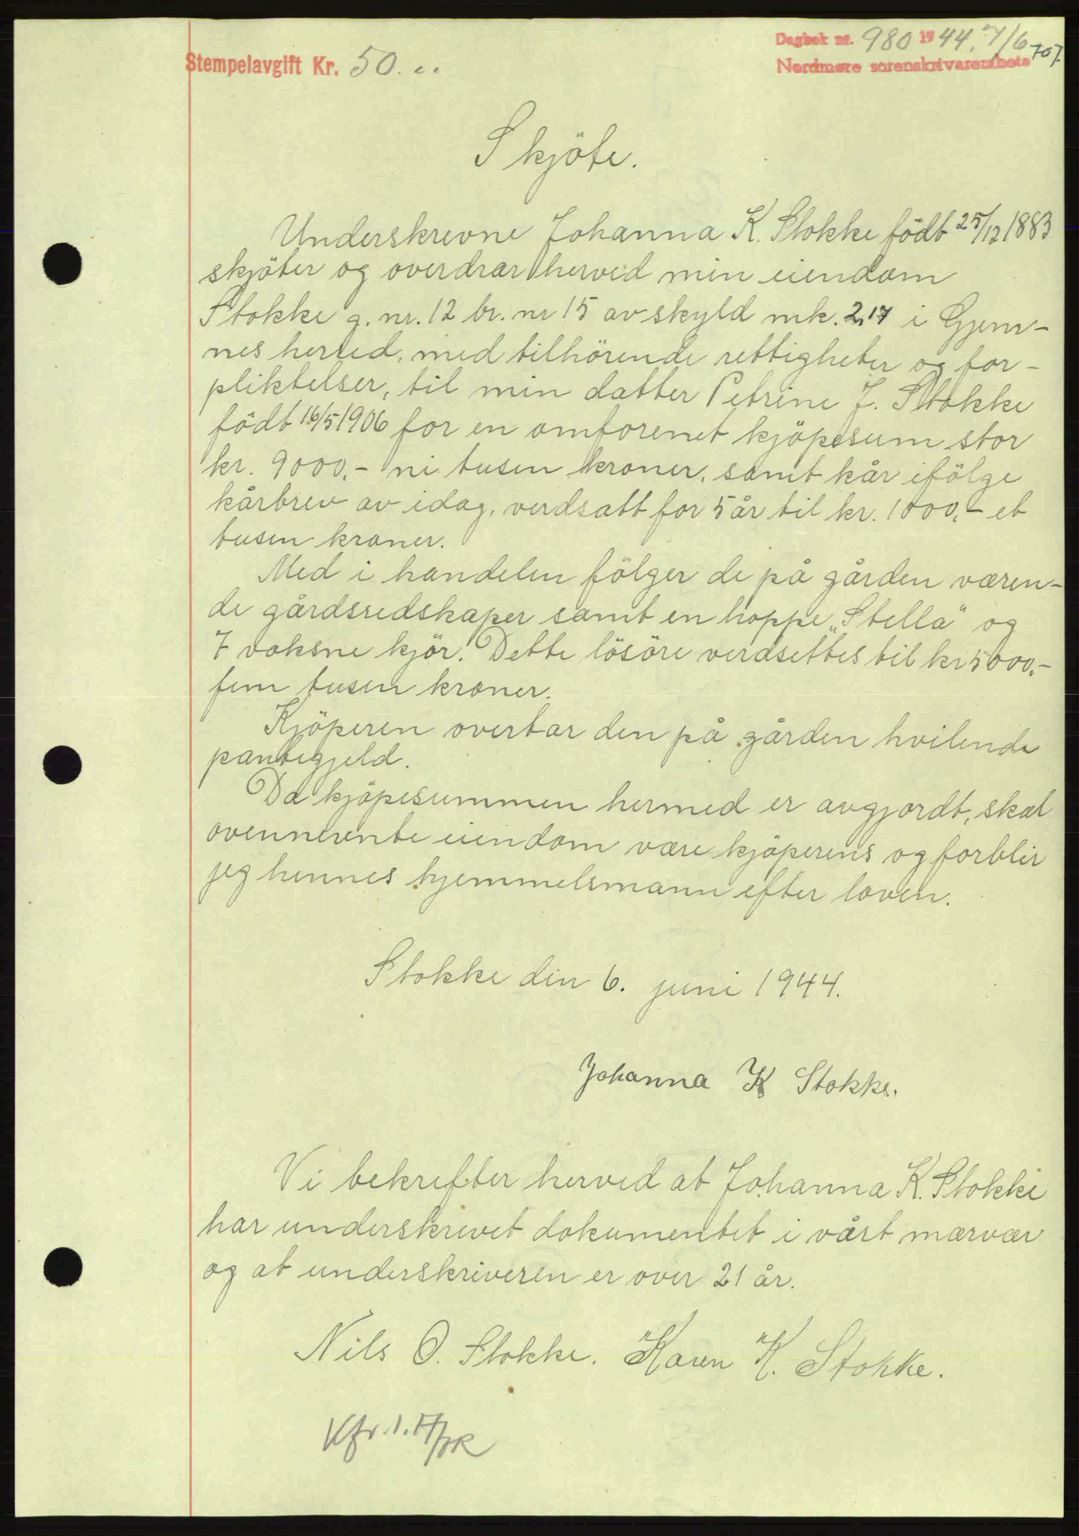 Dagbok nr. 980 1944. 7/6
Stempelavgift Kr. 50.
Nordmøre sorenskriverembete 707.
Skjöte.
Underskrevne Johanna K. Stokke födt 25/12 1883
skjöter og overdrar herved min eiendom
Stokke g. nr. 12 br. nr 15 av skyld mk. 2,17 i Gjem-
nes herred, med tilhörende rettigheter og for-
pliktelser, til min datter Petrine J. Stokke
födt 16/5 1906 for en omforenet kjöpesum stor
kr. 9000,- ni tusen kroner, samt kår ifölge
kårbrev av idag, verdsatt for 5 år til kr. 1000,- et
tusen kroner.
Med i handelen fölger de på gården væren-
de gårdsredskaper samt en hoppe „Stella" og
7 voksne kjör. Dette lösöre verdsettes til kr 5000,-
fem tusen kroner.
Kjöperen overtar den på gården hvilende
pantegjeld.
Da kjöpesummen hermed er avgjordt, skal
ovennevnte eiendom være kjöperens og forblir
jeg hennes hjemmelsmann efter loven.
Stokke den 6. juni 1944.
Johanna K Stokke.
Vi bekrefter herved at Johanna K. Stokke
har underskrevet dokumentet i vårt nærvær
og at underskriveren er over 21 år.
Nils O. Stokke. Karen K. Stokke.
Kfr.